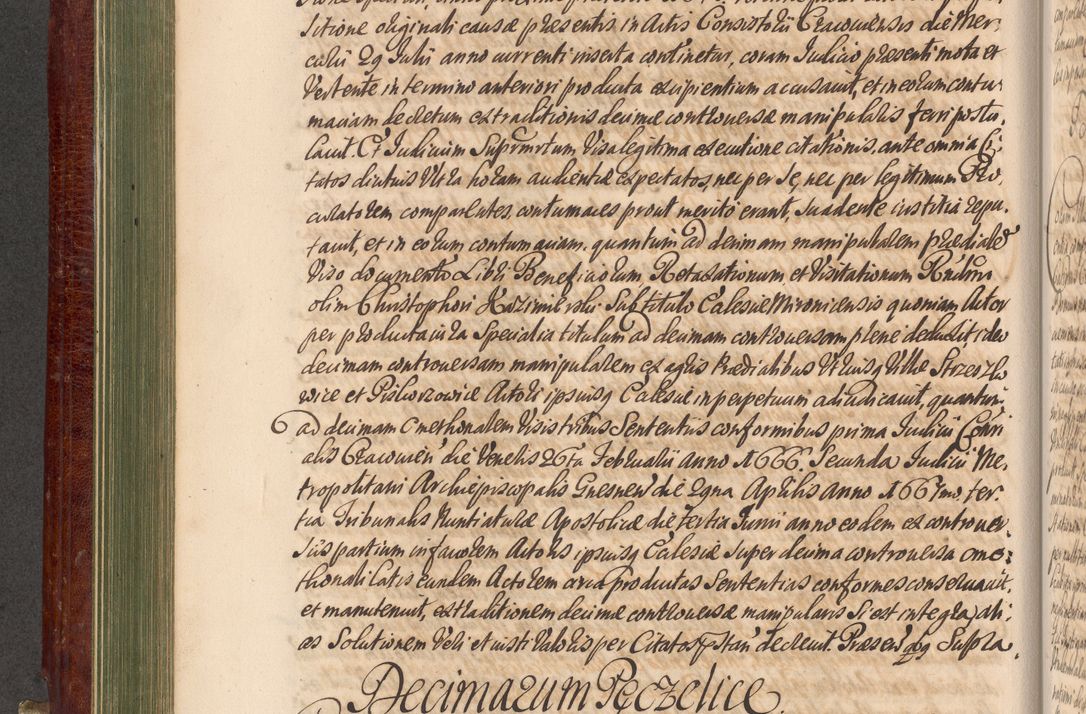 sitione originali causæ præsentis in Actis Consistorii Cracoviensis die Mer-
curii 29 Julii anno currenti inserta continetur, coram Judicio præsenti mota et
Vertente in termino anteriori producta excipientium accusavit, et in eorum contu-
maciam decretum extraditionis decimæ controversæ manipularis ferri postu-
lavit. Et Judicium Supremum Visa legitima executione citationis, ante omnia Ci-
tatos diutius Ultra horam audientiæ expectatos, nec per se, nec per legitimum Pro-
curatorem comparentes, contumaces prout merito erant, suadente iustitia repu-
tavit, et in eorum contumaciam, quantum ad decimam manipularem prædialem
Viso documento Libri Beneficiorum, Retaxationum et Visitationum Rndmi
olim Christophori Kazimirski Sub titulo Ecclesiæ Mironicensis quoniam Actor
per producta iura Specialia titulum ad decimam controversam plene deduxit, ideo
decimam controversam manipularem ex agris Prædialibus Utriusq Villæ Strzeszko
wice et Pislworzowice Actori ipsiusq Ecclesiæ in perpetuum adiudicavit, quantum
ad decimam Cmethonalem Visis tribus Sententiis conformibus prima Iudicii Consi
alis Cracovien die Veneris 26ta Februarii Anno 1666. Secunda Judicii Me-
tropolitani Archiepiscopalis Gnesnen die 2gna Aprilis Anno 1667mo, ter-
tia Tribunalis Nuntiaturæ Apostolicæ die tertia Junii anno eodem ex controver
siis partium in favorem Actoris ipsiusq Ecclesiæ super decima controversa cme-
thonali latis eundem Actorem circa productas Sententias conformes conservavit,
et manutenuit, extraditionem decimæ controversæ manipularis si est integra, ali-
as Solutionem Veri et iusti Valoris per Citatos præstari decrevit. Præsen quo Supra.
Decimarum Pęczelice